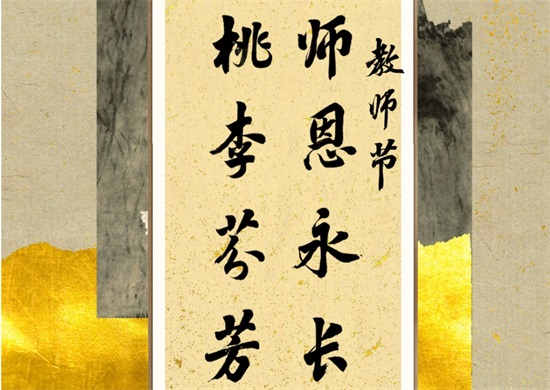 教师节
师恩永长
桃李芬芳